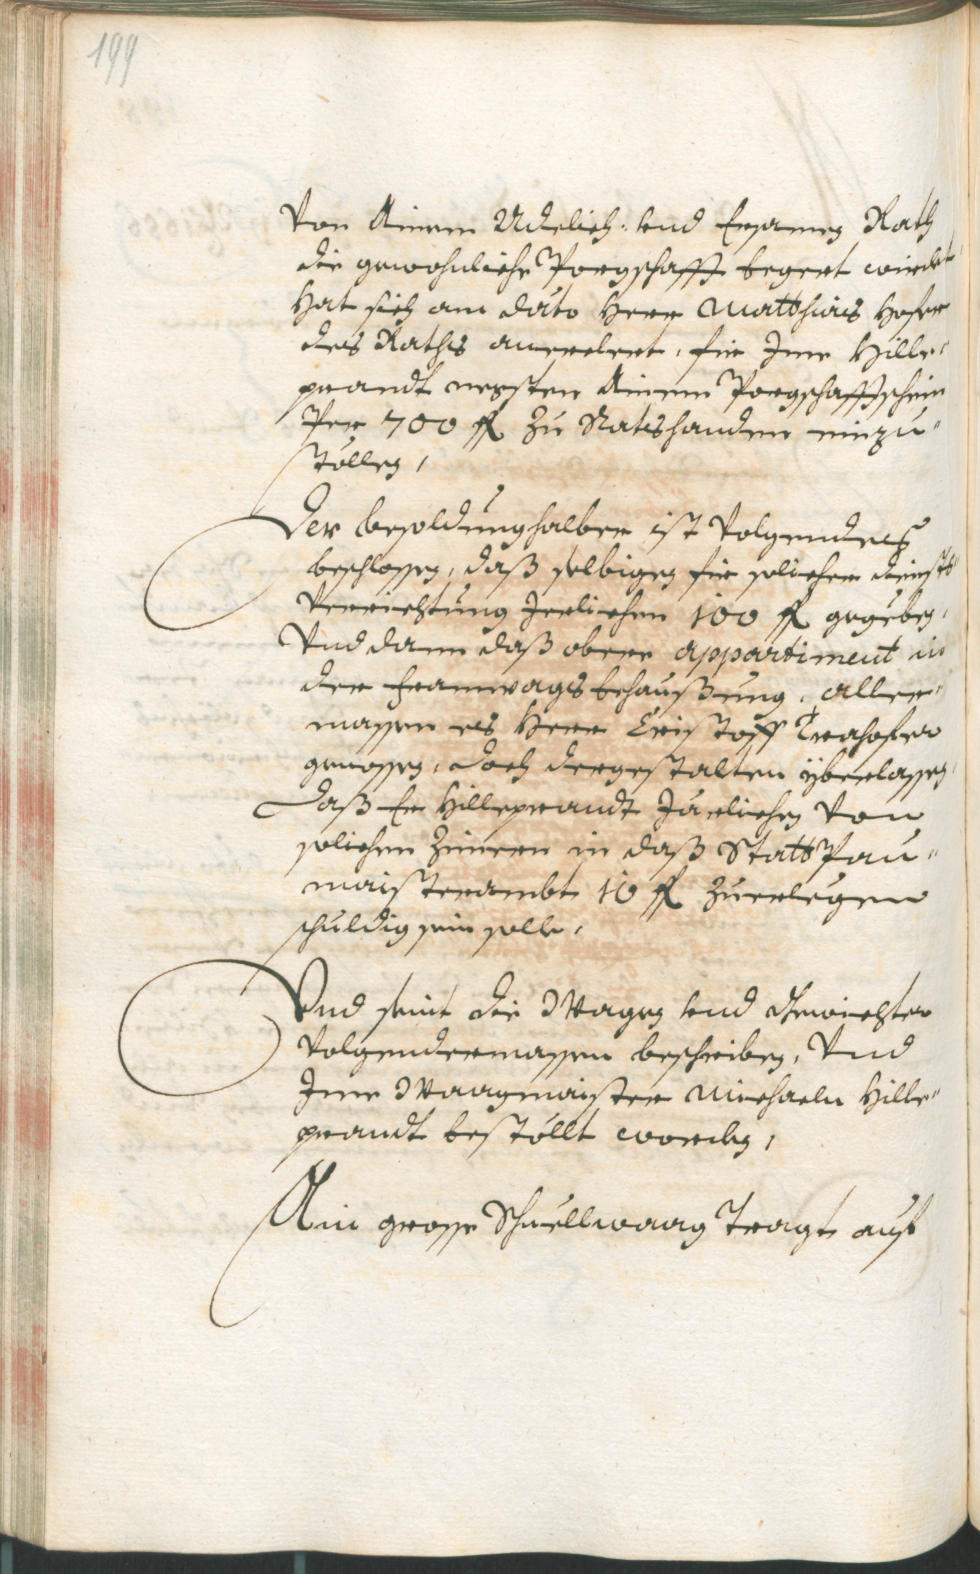 199
Von Ainem Adelich: vnd Ersamen Rath
die gewohnliche Porgschafft begert wirdet
Hat sich am dato Herr Matthias Hofer
des Raths anerclert, fir Jme Hille-
prandt nebsten Ainem Porgschafftschein
Per 700 fl zu Ratshanden einzu-
stöllen,
Der besoldung halber ist Volgendes
beschlossen, daß selbigen fir solichen dienst
Verrichtung Jerlichen 100 fl gegeben,
Vnd dann daß obere appartiment in
der Franwags behaußung, aller-
massen es Herr Cristoff Trahofer
genossen, doch dergestalten yberlassen,
Daß Er Hilleprandt Järlichen Von
solichen Zimern in daß Statt Pau-
maisterambt 10 fl zuerlegen
schuldig sein solle,
Vnd seint die Wagen vnd Gewichter
Volgendermassen beschriben, Vnd
Jme Waagmaister Michaeln Hille-
prandt bestöllt worden,
Ain grosse Schnellwaag Tragt auf